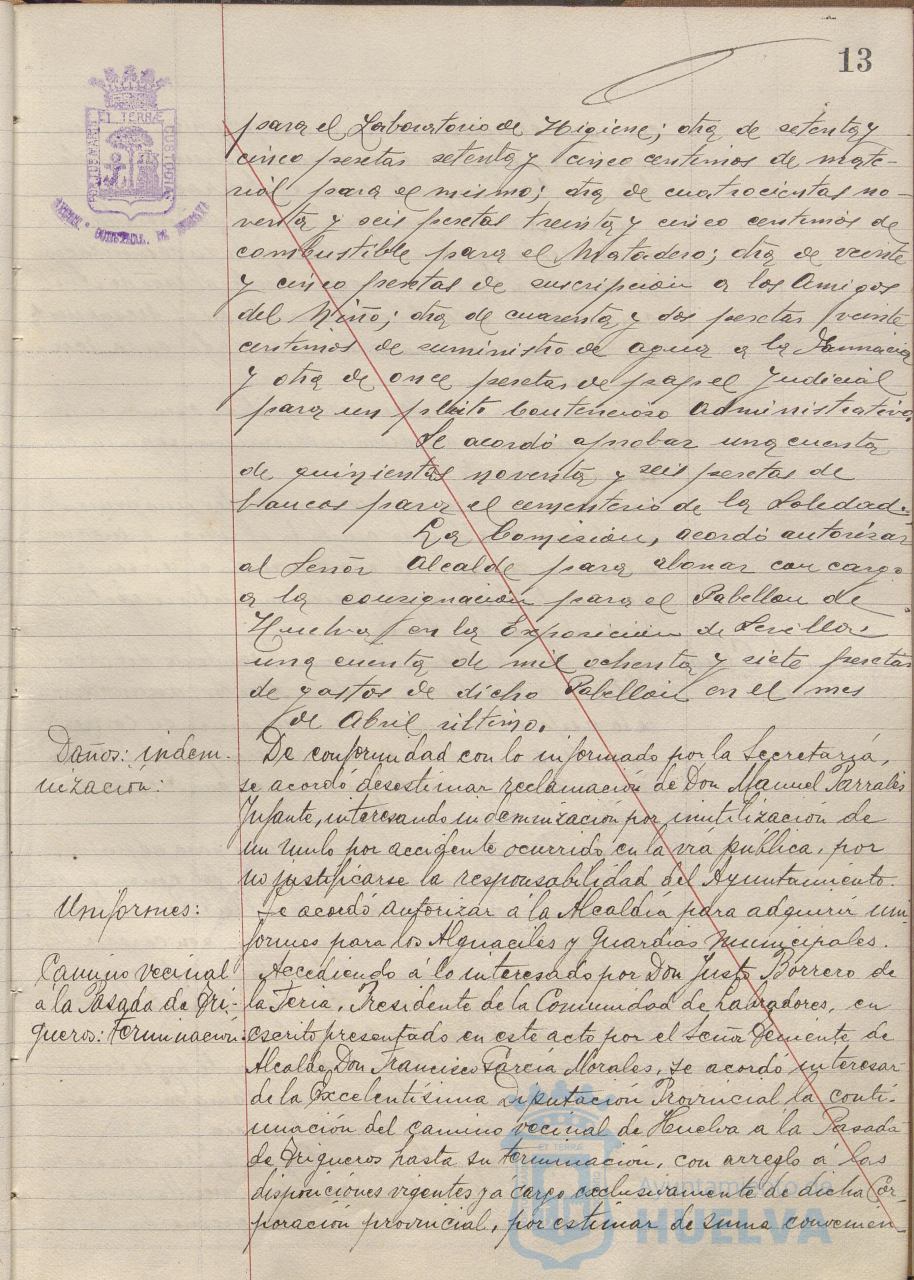 13
PORTUS MARIS ET TERRÆ CUSTODIA
para el Laboratorio de Higiene; otra de setenta y
cinco pesetas setenta y cinco centimos de mate-
rial para el mismo; otra de cuatrocientas no-
venta y seis pesetas treinta y cinco centimos de
combustible para el Matadero; otra de veinte
y cinco pesetas de suscripcion a los Amigos
del Niño; otra de cuarenta y dos pesetas veinte
centimos de suministro de agua a la Farmacia
y otra de once pesetas de papel judicial
para un pleito Contencioso administrativo.
Se acordó aprobar una cuenta
de quinientas noventa y seis pesetas de
bancos para el cementerio de la Soledad.
La Comision, acordó autorizar
al Señor Alcalde para abonar con cargo
a la consignacion para el Pabellon de
Huelva en la Exposicion de Sevilla,
una cuenta de mil ochenta y siete pesetas
de gastos de dicho Pabellon en el mes
de Abril ultimo.
Daños: indem-
nización:
De conformidad con lo informado por la Secretaría,
se acordó desestimar reclamación de Don Manuel Parrales
Infante, interesando indemnización por inutilización de
un mulo por accidente ocurrido en la vía pública, por
no justificarse la responsabilidad del Ayuntamiento.
Uniformes:
Se acordó autorizar á la Alcaldía para adquirir uni-
formes para los Alguaciles y Guardias municipales.
Camino vecinal
á la Pasada de Tri-
gueros: terminación:
Accediendo á lo interesado por Don Justo Borrero de
la Feria, Presidente de la Comunidad de Labradores, en
escrito presentado en este acto por el Señor Teniente de
Alcalde Don Francisco García Morales, se acordó interesar
de la Excelentísima Diputación Provincial la conti-
nuación del camino vecinal de Huelva a la Pasada
de Trigueros hasta su terminación, con arreglo á las
disposiciones vigentes y a cargo exclusivamente de dicha Cor-
poración provincial, por estimar de suma convenien-
ET TERRÆ
Ayuntamiento de
HUELVA